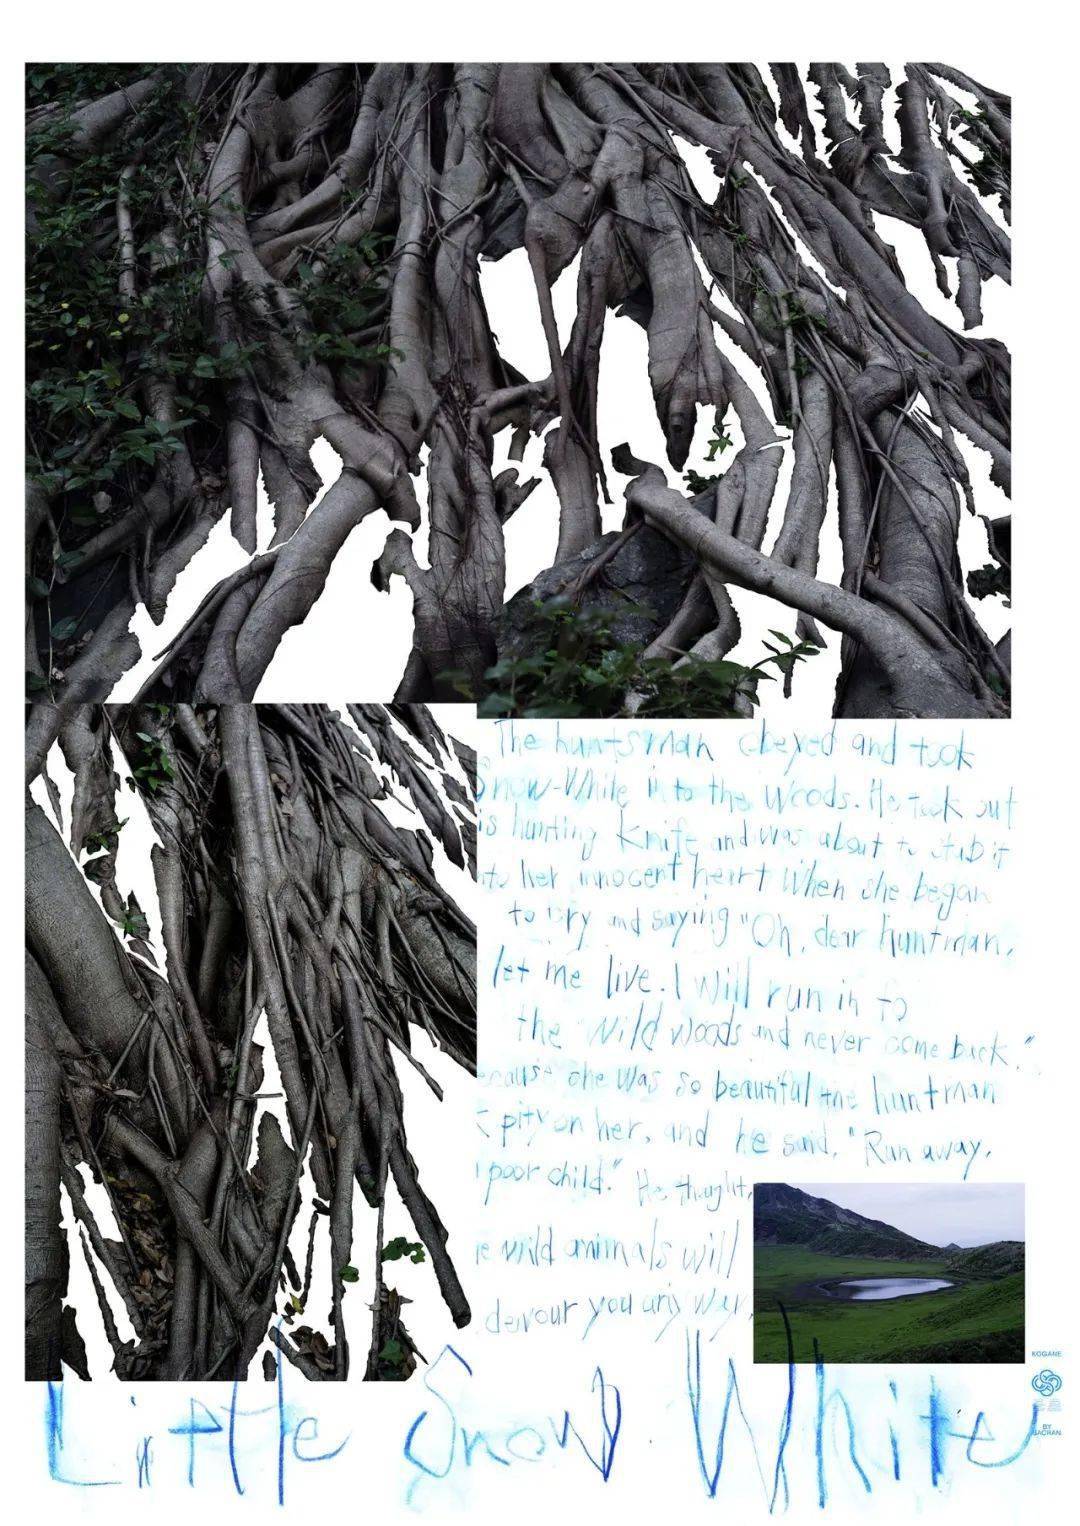 The huntsman obeyed and took
Snow-White into the woods. He took out
is hunting knife and was about to stab it
nto her innocent heart when she began
to cry and saying "Oh, dear huntman,
let me live. I will run in to
the wild woods and never come back."
ecause she was so beautiful the huntman
pity on her, and he said, "Run away,
poor child." He thought,
e wild animals will
devour you any way.
KOGANE
BY
SACHAN
Little Snow White